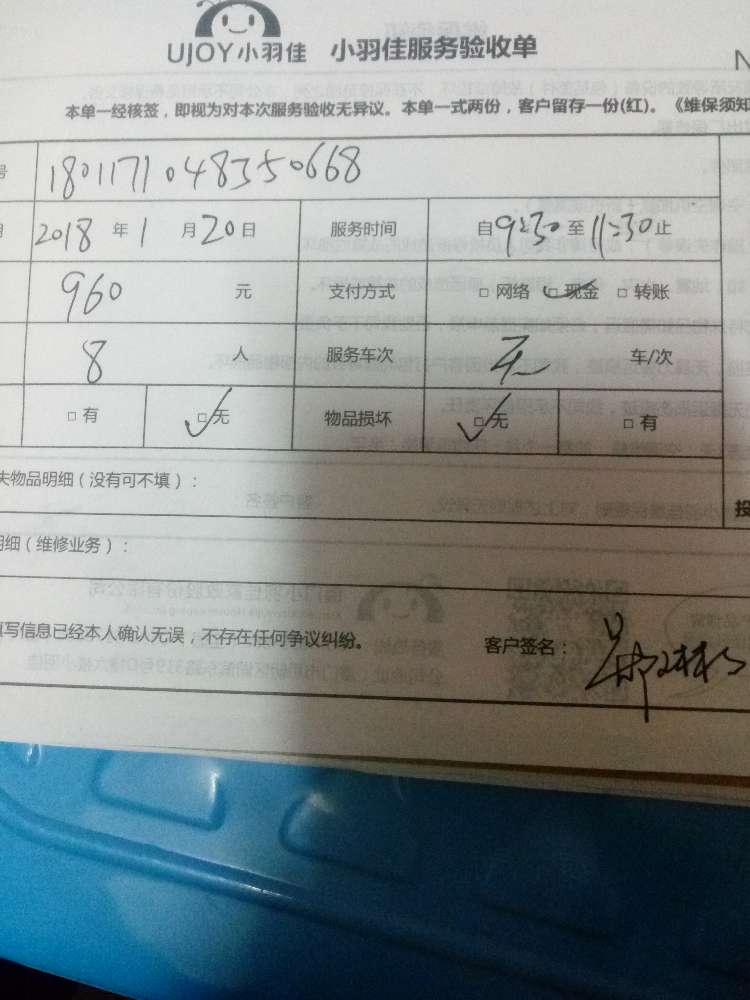 UJOY小羽佳 小羽佳服务验收单
本单一经核签，即视为对本次服务验收无异议。本单一式两份，客户留存一份(红)。《维保须知
号 1801171048350668
2018 年 1 月 20 日 服务时间 自 9:30 至 11:30 止
960 元 支付方式 □ 网络 □ 现金 □ 转账
8 人 服务车次 无 车/次
□ 有 □ 无 物品损坏 □ 无 □ 有
失物品明细（没有可不填）：
投
明细（维修业务）：
填写信息已经本人确认无误，不存在任何争议纠纷。 客户签名：